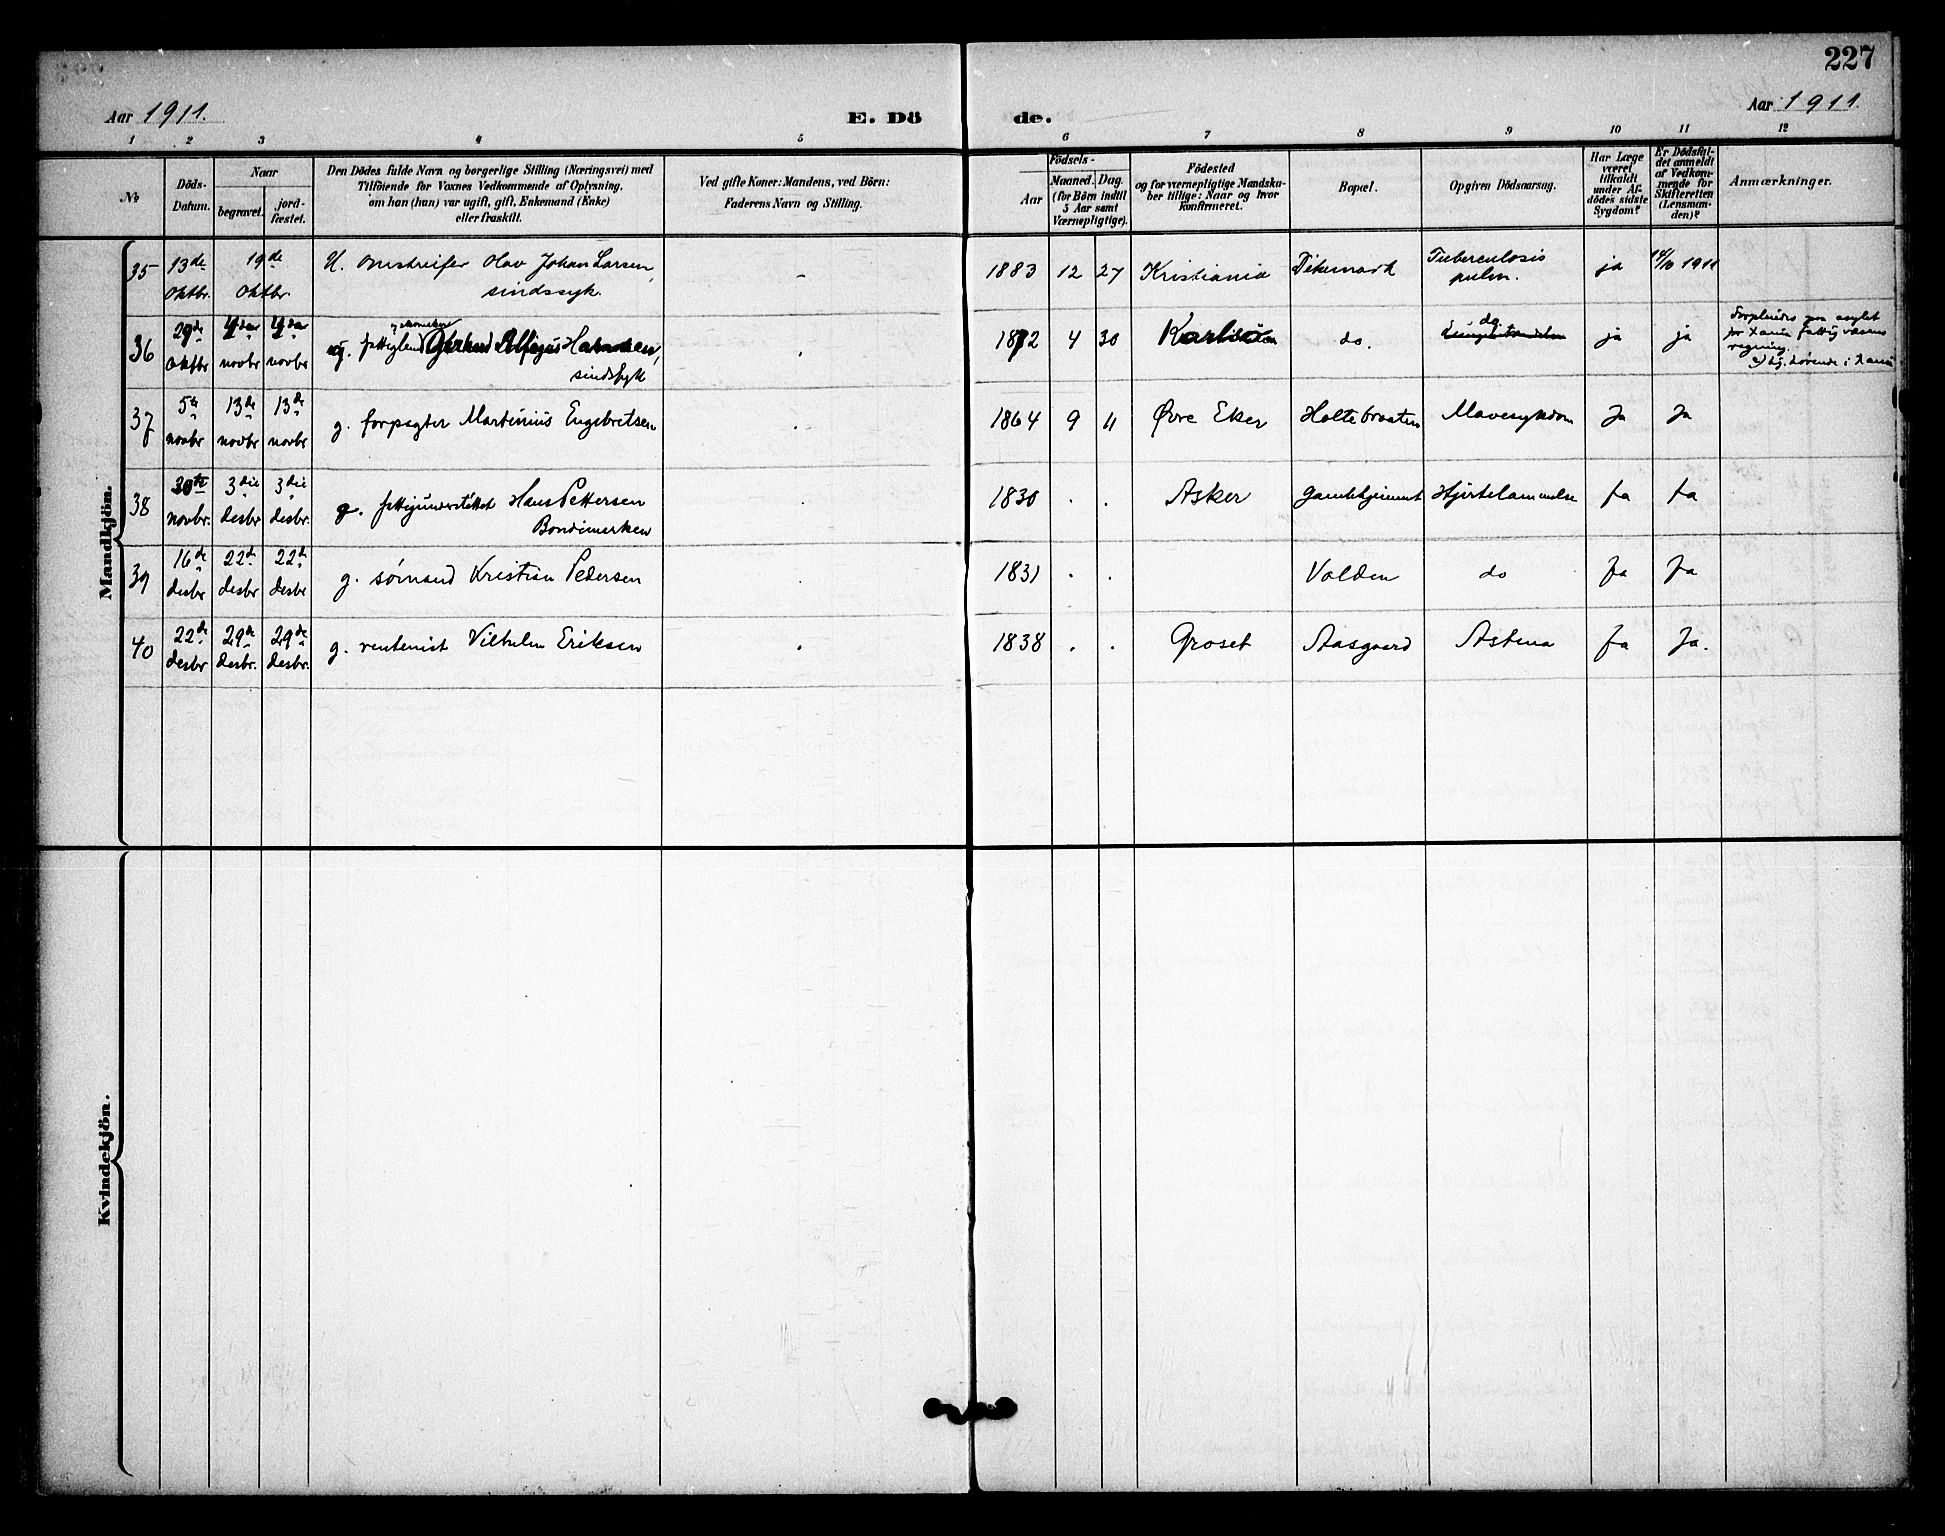 227
Aar 1911.
E. Dö
de.
Aar 1911.
1 2 3 4 5 6 7 8 9 10 11 12
№
Döds-
Datum.
Naar
begravet.
jord-
fæstet.
Den Dödes fulde Navn og borgerlige Stilling (Næringsvei) med
Tilföiende for Voxnes Vedkommende af Oplysning,
om han (hun) var ugift, gift, Enkemand (Enke)
eller fraskilt.
Ved gifte Koner: Mandens, ved Börn:
Faderens Navn og Stilling.
Födsels-
Aar
Maaned. Dag.
(for Börn indtil
5 Aar samt
Værnepligtige).
Födested
og for værnepligtige Mandska-
ber tillige: Naar og hvor
konfirmeret.
Bopæl.
Opgiven Dödsaarsag.
Har Læge
været
tilkaldt
under Af-
dödes sidste
Sygdom?
Er Dödsfal-
det anmeldt
af Vedkom-
mende for
Skifteretten
(Lensman-
den)?
Anmærkninger.
Mandkjön.
35 13de oktbr. 19de oktbr. U. omstreifer Olav Johan Larsen,
sindssyk.
- 1883 12 27 Kristiania Dikemark Tuberculosis
pulm.
ja 14/10 1911
36 29de oktbr 4de novbr 4de novbr Hansen,
sindssyk
1872 4 30 do. do ja ja
37 5te novbr 13de novbr 13de novbr g. forpagter Martinius Engebretsen
1864 9 11 Øvre Eker Holtebraaten Mavesykdom Ja Ja
38 30te novbr. 3die desbr 3die desbr. g. fattigunderstöttet Hans Pettersen
Bondimarken
1830 . . Asker Gamlehjemmet Hjertelammelse Ja Ja
39 16de desbr 22de desbr 22de desbr g. sømand Kristian Pedersen
1831 . . Volden do Ja Ja
40 22de desbr 29de desbr. 29de desbr. g. rentenist Vilhelm Eriksen
1838 . . Groset Aasgaard Astma Ja Ja.
Kvindekjön.